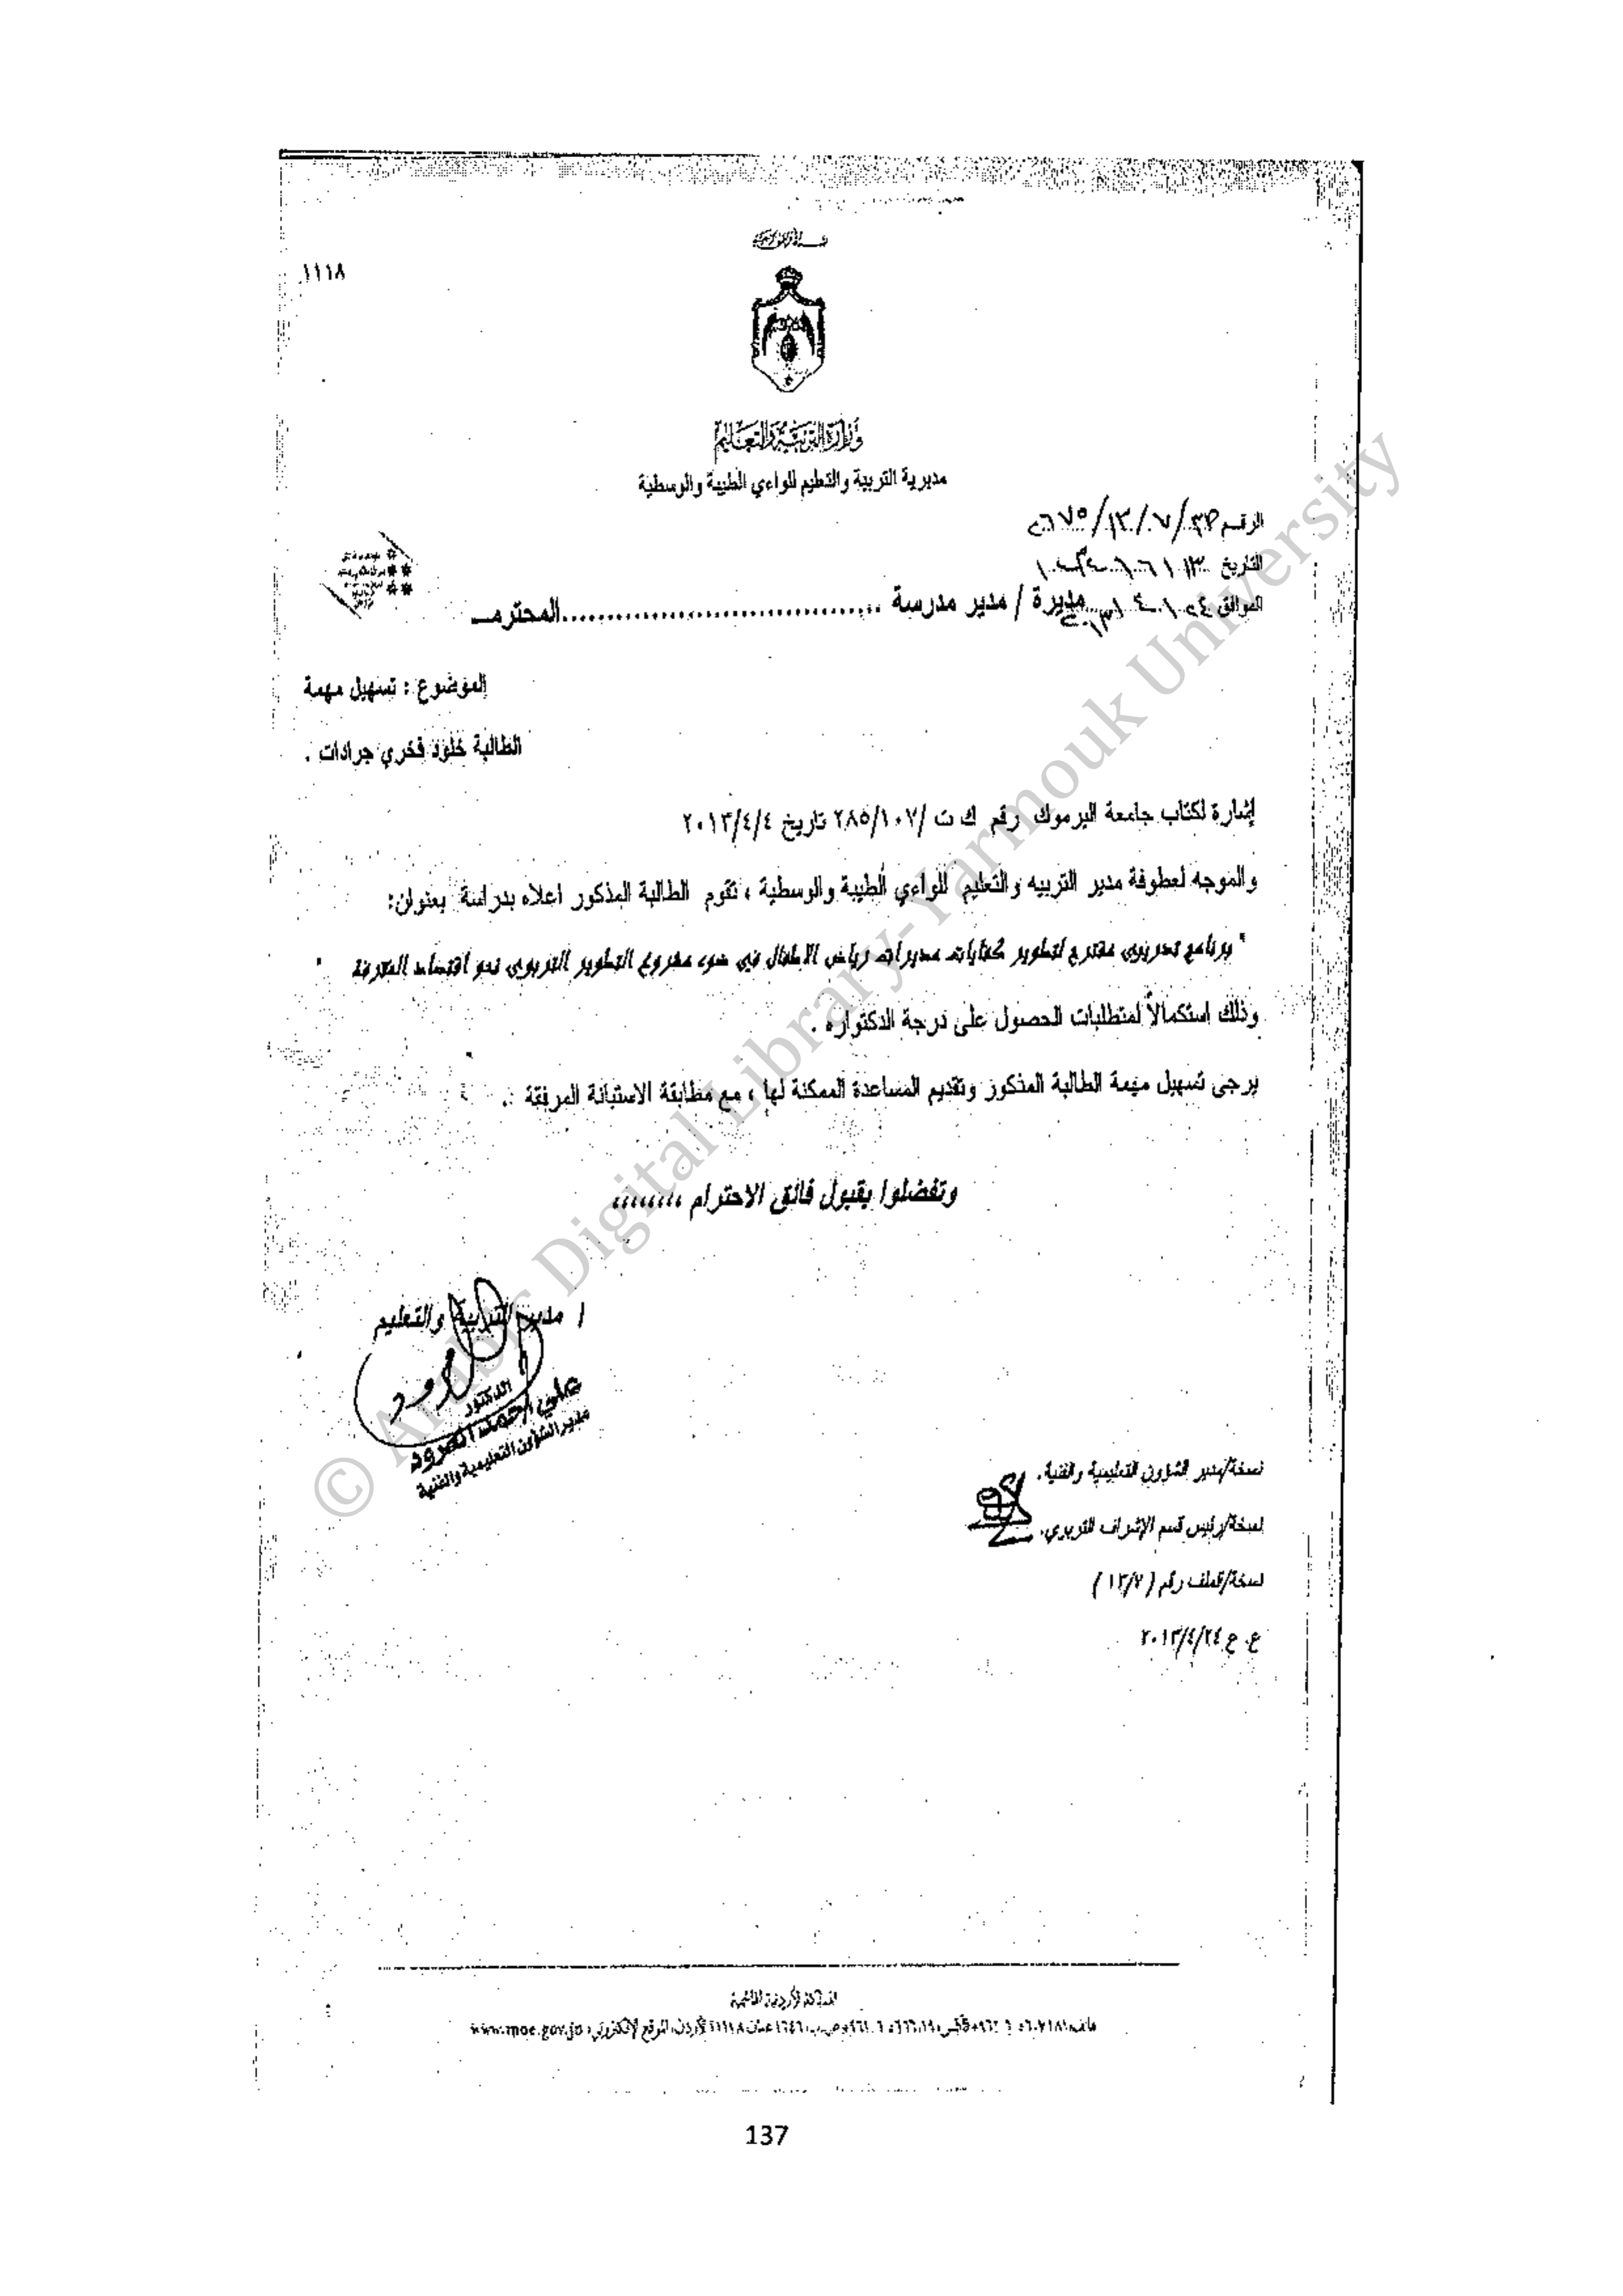 ١١١٨
وزارة التربية والتعليم
مديرية التربية والتعليم للواءي الطيبة والوسطية
الرقم
التاريخ
الموافق
مديرة / مدير مدرسة ..................................المحترمـــ
الموضوع : تسهيل مهمة
الطالبة خلود فخري جرادات .
إشارة لكتاب جامعة اليرموك رقم ك ت /٢٨٥/١٠٧ تاريخ ٢٠١٣/٤/٤
والموجه لعطوفة مدير التربيه والتعليم للواءي الطيبة والوسطية ، تقوم الطالبة المذكور اعلاه بدراسة بعنوان:
" برنامج تدريبي مقترح لتطوير كفايات مديرات رياض الاطفال في ضوء مشروع التطوير التربوي نحو اقتصاد المعرفة "
وذلك استكمالاً لمتطلبات الحصول على درجة الدكتوراه .
يرجى تسهيل مهمة الطالبة المذكور وتقديم المساعدة الممكنة لها ، مع مطابقة الاستبانة المرفقة .
وتفضلوا بقبول فائق الاحترام ،،،،،،،،
/ مدير التربية والتعليم
الدكتور
علي احمد
مدير الشؤون التعليمية والفنية
نسخة/مدير الشؤون التعليمية والفنية.
نسخة/رئيس قسم الإشراف التربوي.
نسخة/الملف رقم ( ١٣/٧ )
ع.ع ٢٠١٣/٤/٢٤
المملكة الأردنية الهاشمية
www.moe.gov.jo
© Arabic Digital Library-Yarmouk University
137